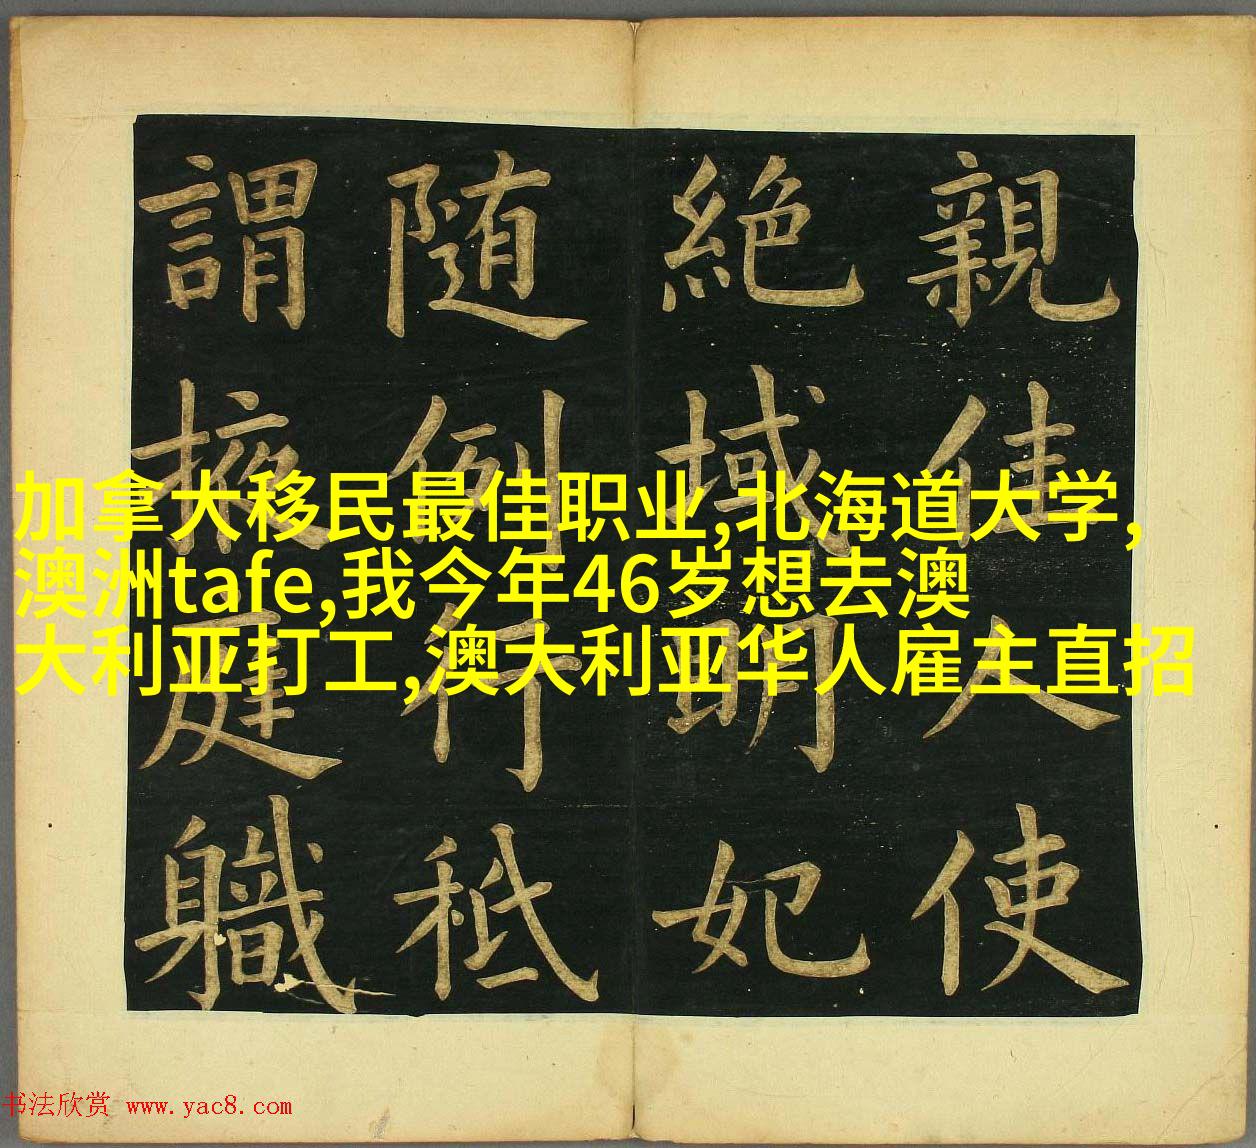 親佳人使
絶域明妃
随例行秪
謂掖庭職
加拿大移民最佳职业,北海道大学,
澳洲tafe,我今年46岁想去澳
大利亚打工,澳大利亚华人雇主直招
书法欣赏 www.yac8.com